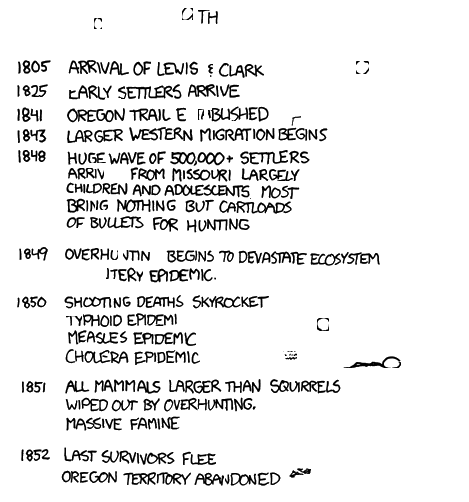 1805 ARRIVAL OF LEWIS & CLARK
1825 EARLY SETTLERS ARRIVE
1841 OREGON TRAIL
1843 LARGER WESTERN MIGRATION BEGINS
1848 HUGE WAVE OF 500,000+ SETTLERS
FROM MISSOURI LARGELY
CHILDREN AND ADOLESCENTS MOST
BRING NOTHING BUT CARTLOADS
OF BULLETS FOR HUNTING
1849 BEGINS TO DEVASTATE ECOSYSTEM
EPIDEMIC.
1850 SHOOTING DEATHS SKYROCKET
TYPHOID EPIDEMI
MEASLES EPIDEMIC
CHOLERA EPIDEMIC
1851 ALL MAMMALS LARGER THAN SQUIRRELS
WIPED OUT BY OVERHUNTING.
MASSIVE FAMINE
1852 LAST SURVIVORS FLEE
OREGON TERRITORY ABANDONED